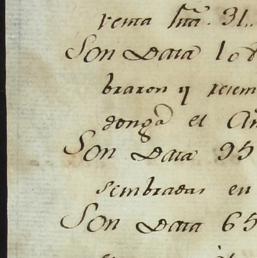 renta 31.
Son Data 10
braron y resem
donga el An
Son Data 95
sembradas en
Son Data 65